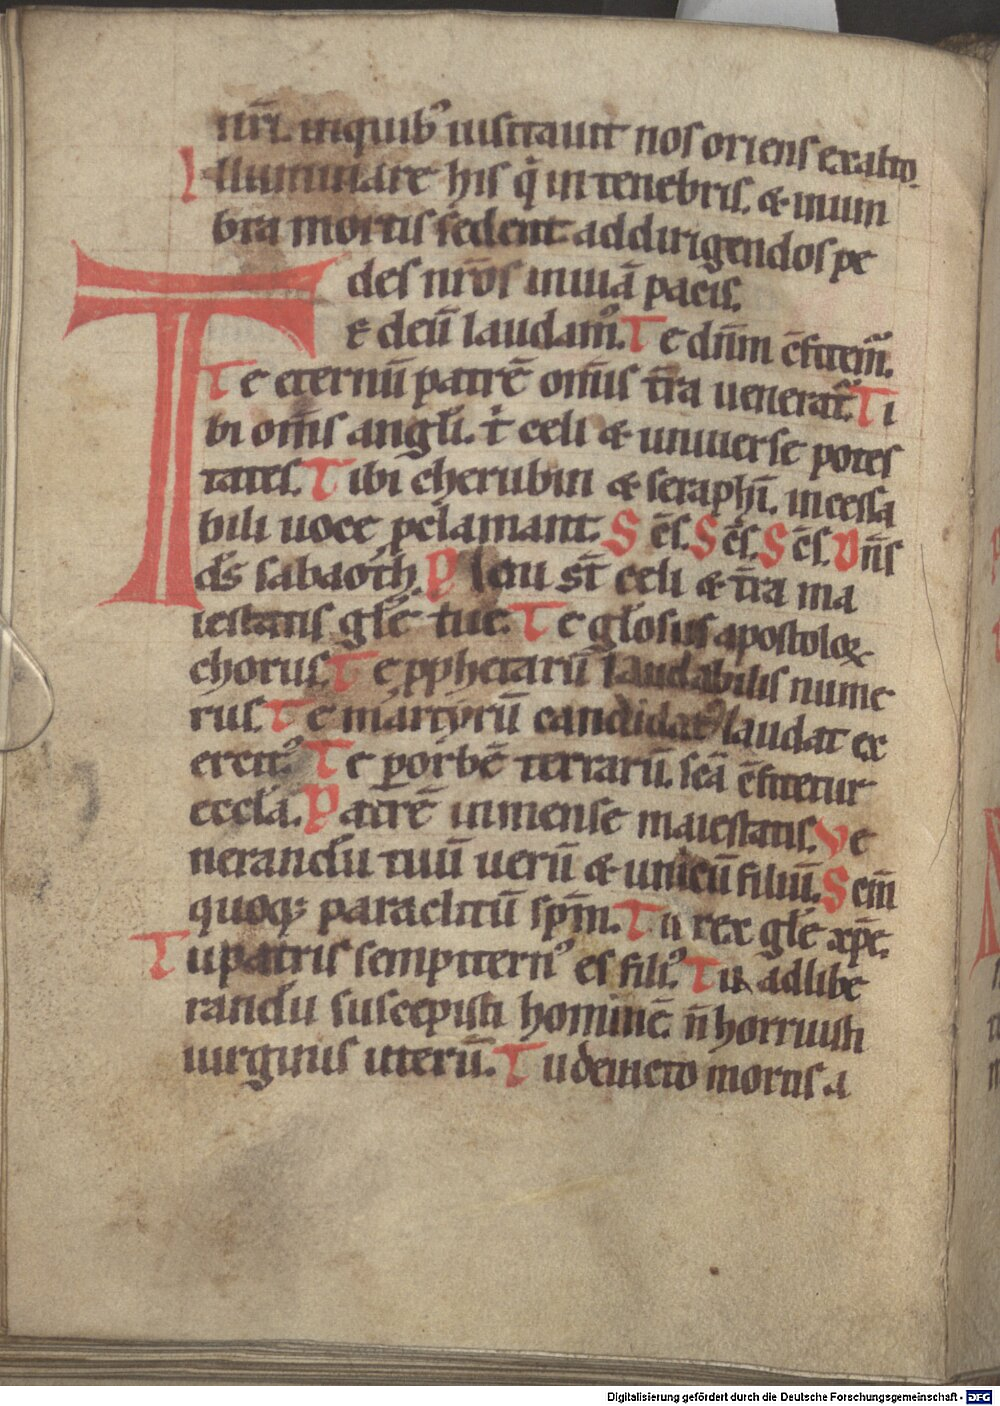 nr̄i. inquib᷒ uisitauit nos oriens exalto.
Illuminare his q̇ in tenebris. & inum
bra mortis sedent addirigendos pe
des nr̄os inuiā pacis.
Te deū laudam᷒. Te dn̄m c̄fitem᷒.
Te eternū patrē om̄is t̄ra uenerat᷒. Ti
bi om̄s angl̄i. ṫ celi & uniuerse potes
tates. Tibi cherubin & seraphī. incessa
bili uoce pclamant. Sc̄s. Sc̄s. Sc̄s. Dn̄s
ds̄ sabaoth. Pleni st̄ celi & t̄ra ma
iestatis gl̄e tue. Te gl̄osus apostoloꝝ
chorus. Te ꝓphetarū laudabilis nume
rus. Te martyrū candidat᷒ laudat ex
ercit᷒. Te ꝑorbē terrarū. scā c̄fitetur
eccl̄a. Patrē inmense maiestatis. Ve
nerandū tuū uerū & unicū filiū. Scm̄
quoqꝫ paraclitū sp̄m. Tu rex gl̄e xp̄e.
Tu patris sempitern᷒ es fili᷒. Tu adlibe
randū suscepisti hominē. n̄ horruisti
uirginis uterū. Tu deuicto mortis a
Digitalisierung gefördert durch die Deutsche Forschungsgemeinschaft - DFG